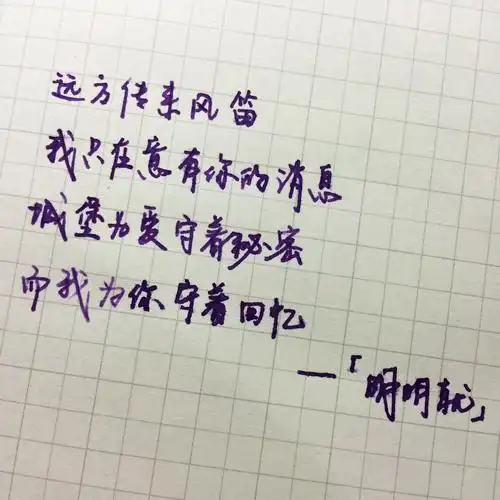 远方传来风笛
我只在意有你的消息
城堡为爱守着秘密
而我为你守着回忆
—「明明就」